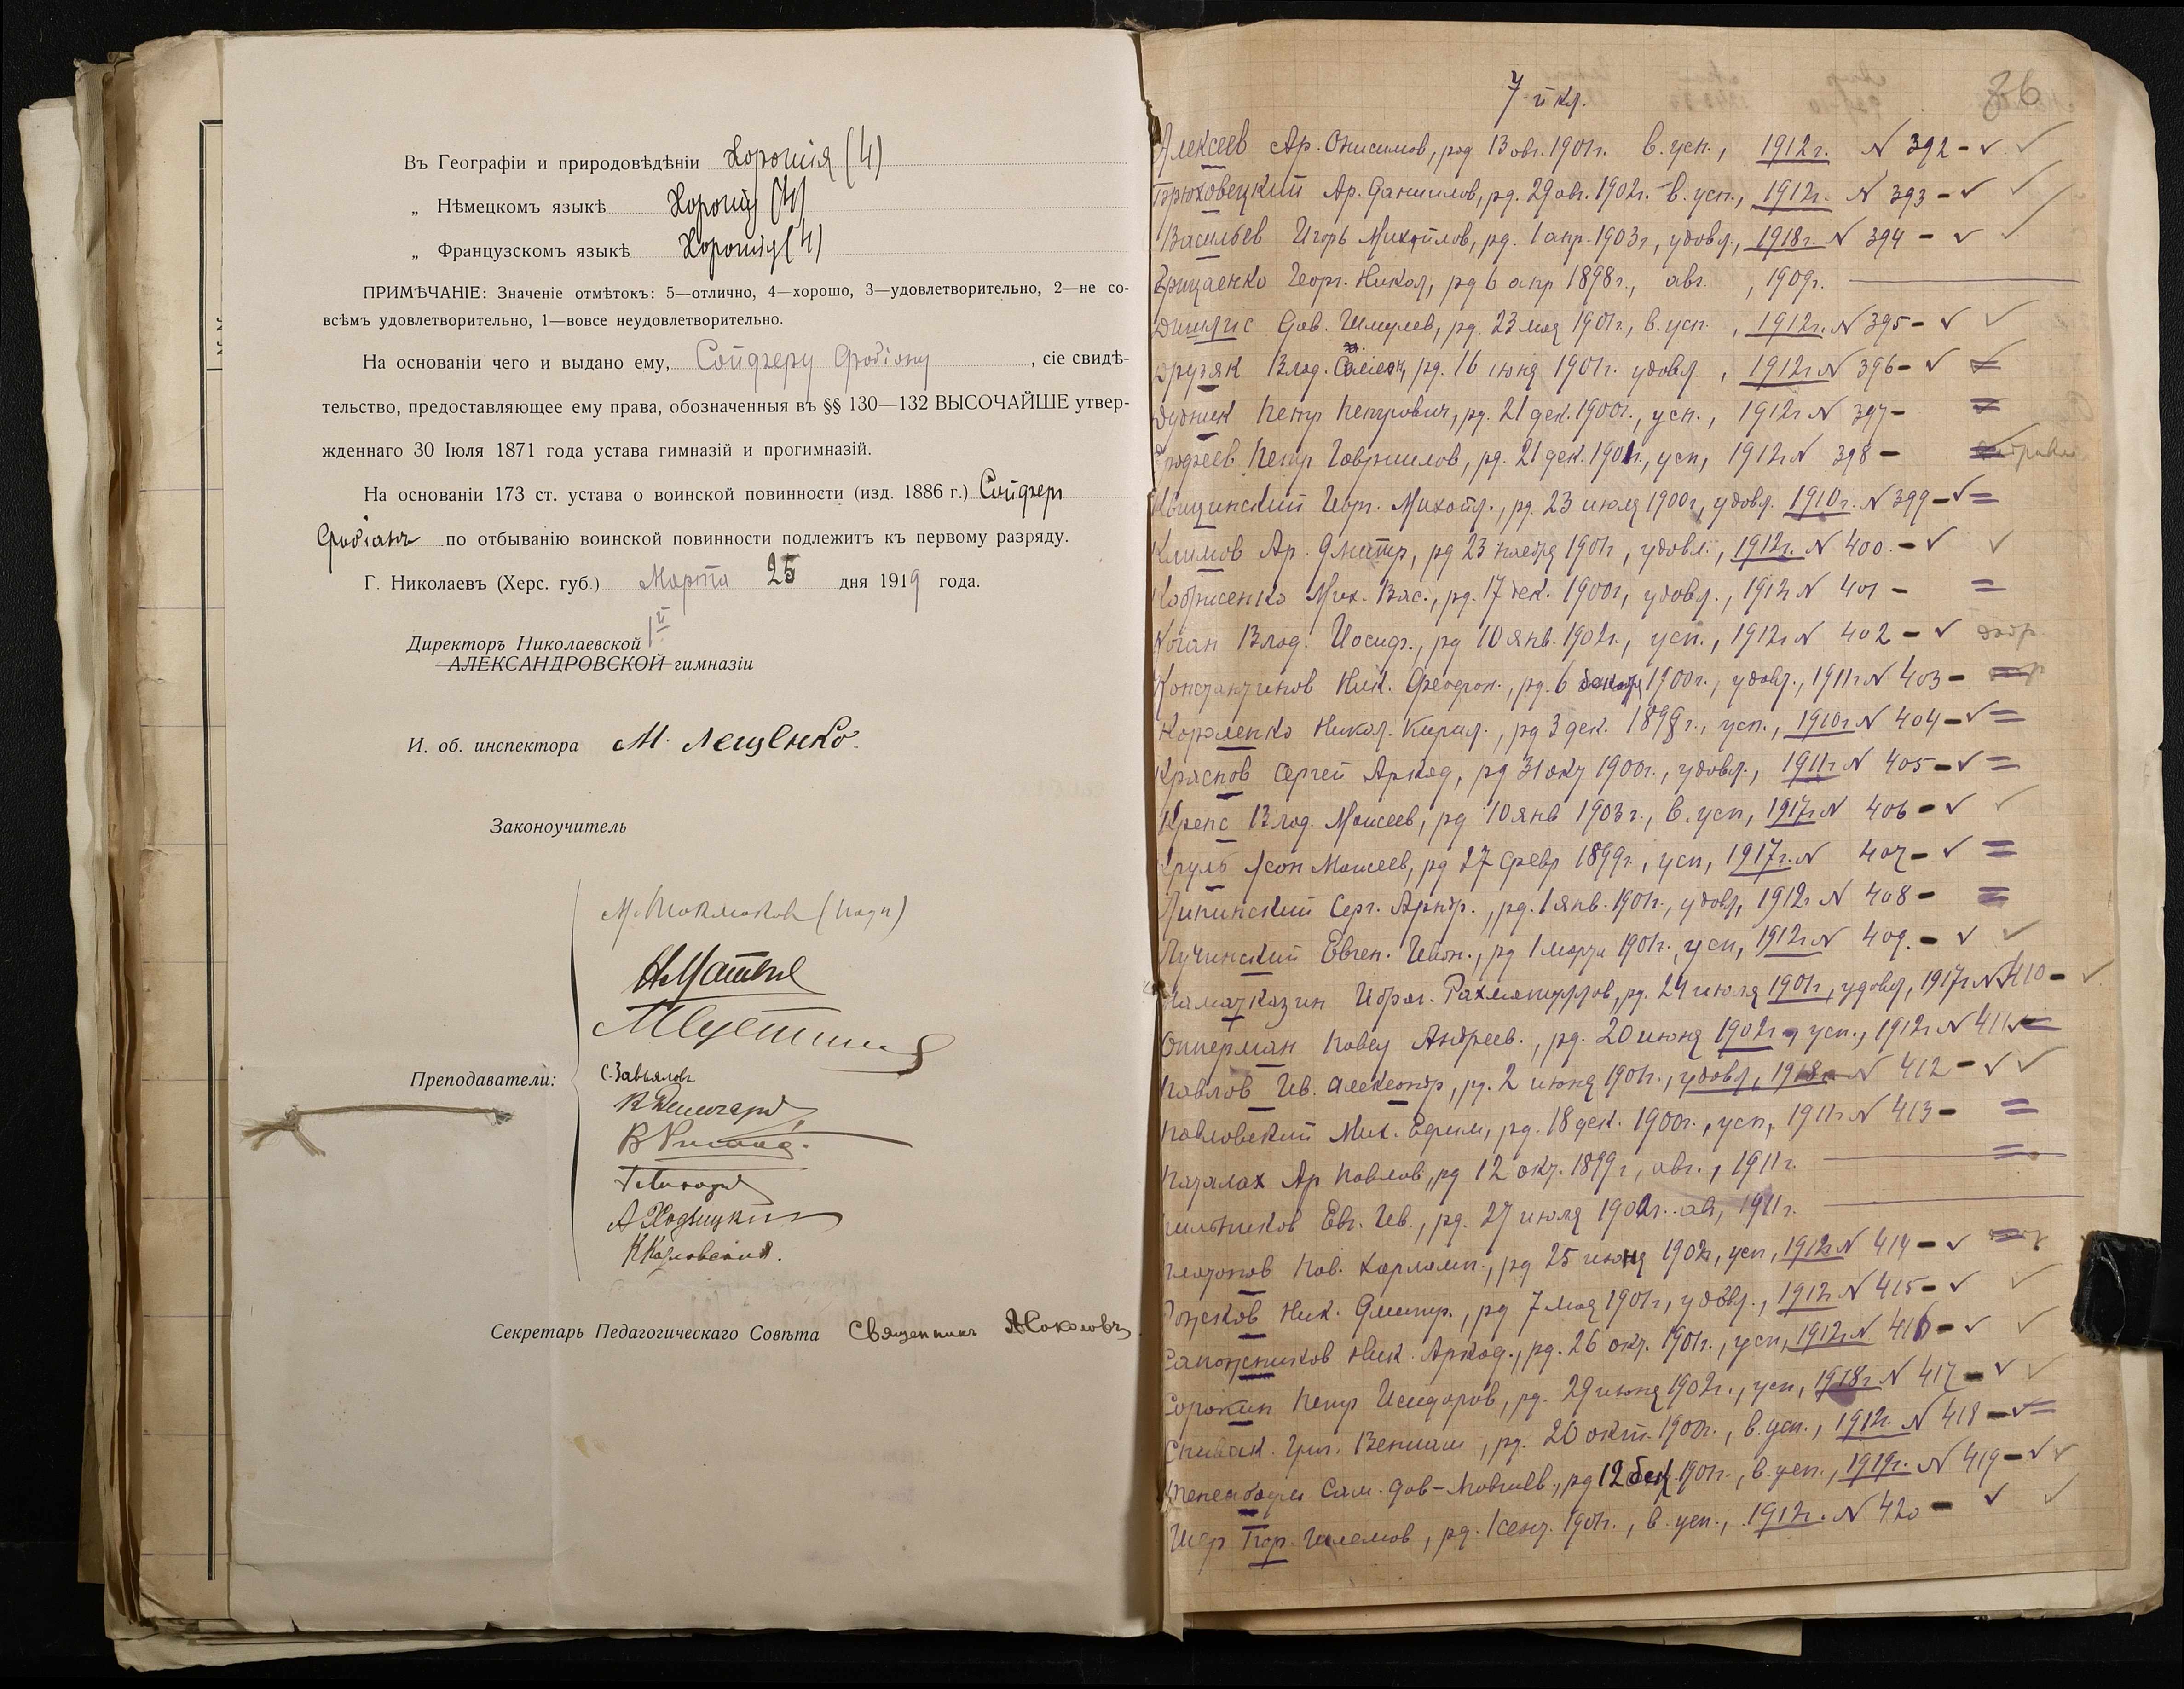 Въ Географіи и природовѣдѣніи Хорошія (4)
„ Нѣмецкомъ языкѣ Хорошія (4)
„ Французскомъ языкѣ Хорошія (4)
ПРИМѢЧАНІЕ: Значеніе отмѣтокъ: 5—отлично, 4—хорошо, 3—удовлетворительно, 2—не со-
всѣмъ удовлетворительно, 1—вовсе неудовлетворительно.
На основаніи чего и выдано ему, Сойферу Фродіону, сіе свидѣ-
тельство, предоставляющее ему права, обозначенныя въ §§ 130—132 ВЫСОЧАЙШЕ утвер-
жденнаго 30 Іюля 1871 года устава гимназій и прогимназій.
На основаніи 173 ст. устава о воинской повинности (изд. 1886 г.) Сойферъ
по отбыванію воинской повинности подлежитъ къ первому разряду.
Г. Николаевъ (Херс. губ.) Марта 25 дня 1919 года.
Директоръ Николаевской 1й
АЛЕКСАНДРОВСКОЙ гимназіи
И. об. инспектора М. Лещенко.
Законоучитель
С. Завьяловъ
Преподаватели:
А Ходзицкій
К Козловскій.
Секретарь Педагогическаго Совѣта Священникъ А Соколовъ
36
7-й кл.
Алексеев Ар. Онисимов, род 13 авг. 1901г. в. усп., 1912г. № 392 - ✓ ✓
Брюховецкий Ар. Данилов, рд. 29 авг. 1902г. в. усп., 1912г. № 393 - ✓ ✓
Васильев Игорь Михайлов, рд. 1 апр. 1903г, удовл., 1918г. № 394 - ✓ ✓
Грищенко Георг. Никол, рд 6 апр 1898г., авг., 1909г.
Дав. Шмулев, рд. 23 мая 1901г., в. усп., 1912г. № 395 - ✓ ✓
Друзяк Влад. рд. 16 июня 1901г. удовл., 1912г № 396 - ✓
Дудник Петр Петрович, рд. 21 дек. 1900г., усп., 1912г № 397 -
Петр Гаврилов, рд. 21 дек. 1901г., усп, 1912г № 398 -
Квицинский Георг. Михайл., рд. 23 июля 1900г, удовл. 1910г. № 399 - ✓ =
Климов Ар. Дмитр, рд 23 ноября 1901г, удовл., 1912г. № 400. - ✓ ✓
Мих. Вас., рд. 17 дек. 1900г, удовл., 1912г № 401 - =
Коган Влад. Иосиф., рд 10 янв. 1902г., усп., 1912г № 402 - ✓
Константинов Ник. Феофан., рд. 6 1900г., удовл., 1911г № 403 -
Короленко Никол. Кирил., рд 3 дек. 1899г., усп., 1910г № 404 - ✓ =
Краснов Сергей Аркад, рд 31 окт 1900г., удовл., 1911г № 405 - ✓ =
Кренс Влад. Моисеев, рд 10 янв 1903г., в. усп, 1917г № 406 - ✓ ✓
Круль Моисеев, рд 27 февр 1899г., усп, 1917г. № 407 - ✓ =
Липинский Серг. рд. 1 янв. 1901г., удовл, 1912г № 408 - =
Лучинский Евген. рд 1 марта 1901г., усп, 1912г № 409. - ✓ ✓
Намазказин Ибраг. рд. 24 июля 1901г, удовл, 1917г № 410 - ✓
Опперман Павел Андреев., рд. 20 июня 1902г, усп., 1912г № 411
Павлов Ив. Александр, рд. 2 июня 1901г., удовл, 1918г № 412 - ✓ ✓
Павловский Мих. Ефим, рд. 18 дек. 1900г., усп, 1911г № 413 - =
Паталах Ар Павлов, рд 12 окт. 1899г, авг., 1911г.
Евг. Ив., рд. 27 июля 1902г. ав, 1911г.
Платонов Пав. Харламп., рд 25 июня усп, 1912г № 414 - ✓
Рожсков Ник. Дмитр., рд 7 мая 1901г, удовл., 1912г № 415 - ✓ ✓
Сапожников Ник. Аркад., рд. 26 окт. 1901г., усп, 1912г № 416 - ✓ ✓
Сорокин Петр Исидоров, рд. 29 июня 1902г., усп, 1918г № 417 - ✓ ✓
Спивак Григ. Вениам, рд. 20 окт. 1900г., в. усп., 1912г. № 418 - ✓ =
Сам. Дав-Мовшев., рд 12 дек 1901г., в. усп., 1919г. № 419 - ✓ ✓
Шер Гер. Шлемов, рд. 1 сент. 1901г., в. усп., 1912г. № 420 - ✓ ✓